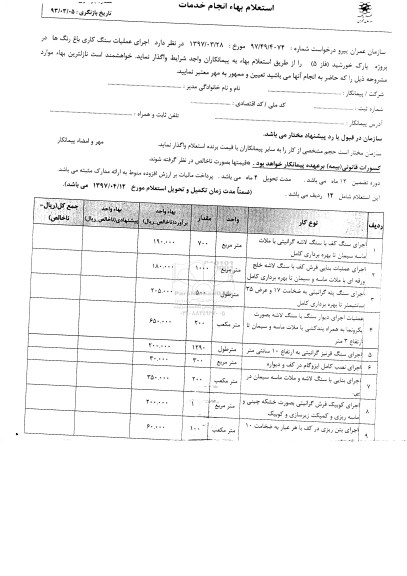 استعلام بهاء انجام خدمات
تاریخ بازنگری : ۹۳/۰۳/۰۵
سازمان عمران پیرو درخواست شماره : ۹۷/۴۹/۴۰۷۴ مورخ : ۱۳۹۷/۰۳/۲۸ در نظر دارد اجرای عملیات سنگ کاری باغ رنگ ها در
پروژه پارک خورشید (فاز ۵) را از طریق استعلام بهاء به پیمانکاران واجد شرایط واگذار نماید. خواهشمند است نازلترین بهاء موارد
مشروحه ذیل را که حاضر به انجام آنها می باشید تعیین و ممهور به مهر معتبر نمایید.
شرکت / پیمانکار : نام و نام خانوادگی مدیر :
شماره ثبت : کد ملی / کد اقتصادی :
آدرس پیمانکار : تلفن ثابت و همراه :
سازمان در قبول یا رد پیشنهاد مختار می باشد.
سازمان مختار است حجم مشخصی از کار را به سایر پیمانکاران با قیمت برنده استعلام واگذار نماید. مهر و امضاء پیمانکار
کسورات قانونی(بیمه) برعهده پیمانکار خواهد بود . قیمتها بصورت ناخالص در نظر گرفته شوند.
دوره تضمین ۱۲ ماه می باشد . مدت تحویل ۴ ماه می باشد . پرداخت مالیات بر ارزش افزوده منوط به ارائه مدارک مثبته می باشد
این استعلام شامل ۱۲ ردیف می باشد . (ضمناً مدت زمان تکمیل و تحویل استعلام مورخ ۱۳۹۷/۰۴/۱۲ می باشد).
ردیف نوع کار واحد مقدار بهاء واحد برآورد(ناخالص_ریال) بهاء واحد پیشنهادی(ناخالص_ریال) جمع کل(ریال-ناخالص)
۱ اجرای سنگ کف با سنگ لاشه گرانیتی با ملات ماسه سیمان تا بهره برداری کامل متر مربع ۷۰۰ ۱۹۰,۰۰۰
۲ اجرای عملیات بنایی فرش کف با سنگ لاشه خلج ورقه ای با ملات ماسه و سیمان تا بهره برداری کامل متر مربع ۱۰۰۰ ۱۸۰,۰۰۰
۳ اجرای سنگ پله گرانیتی به ضخامت ۱۷ و عرض ۳۵ سانتیمتر تا بهره برداری کامل مترطول ۵۰۰ ۲۰۵,۰۰۰
۴ عملیات اجرای دیوار سنگ با سنگ لاشه بصورت یکرونما به همراه بندکشی با ملات ماسه و سیمان تا ارتفاع ۳ متر متر مکعب ۲۰۰ ۶۵۰,۰۰۰
۵ اجرای سنگ قرنیز گرانیتی به ارتفاع ۱۰ سانتی متر مترطول ۱۲۹۰ ۲۰۰,۰۰۰
۶ اجرای نصب کامل ایزوگام در کف و دیواره متر مربع ۳۰۰ ۳۰,۰۰۰
۷ اجرای بنایی با سنگ لاشه و ملات ماسه سیمان در پی متر مکعب ۲۰۰ ۳۵۰,۰۰۰
۸ اجرای کوبیک فرش گرانیتی بصورت خشکه چینی و ماسه ریزی و کمپکت زیرسازی و کوبیک متر مربع ۲۰۰,۰۰۰
۹ اجرای بتن ریزی در کف با هر عیار به ضخامت ۱۰ متر مکعب ۱۰۰ ۶۰,۰۰۰